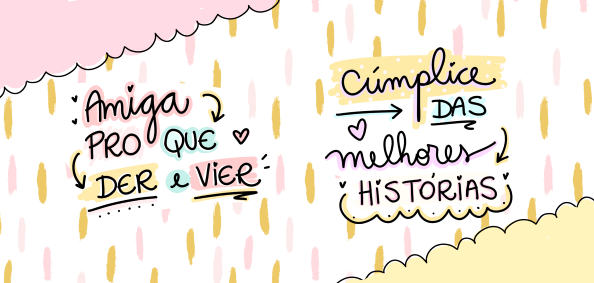 Amiga
PRO QUE
DER e VIER
Cúmplice
DAS
melhores
HISTÓRIAS